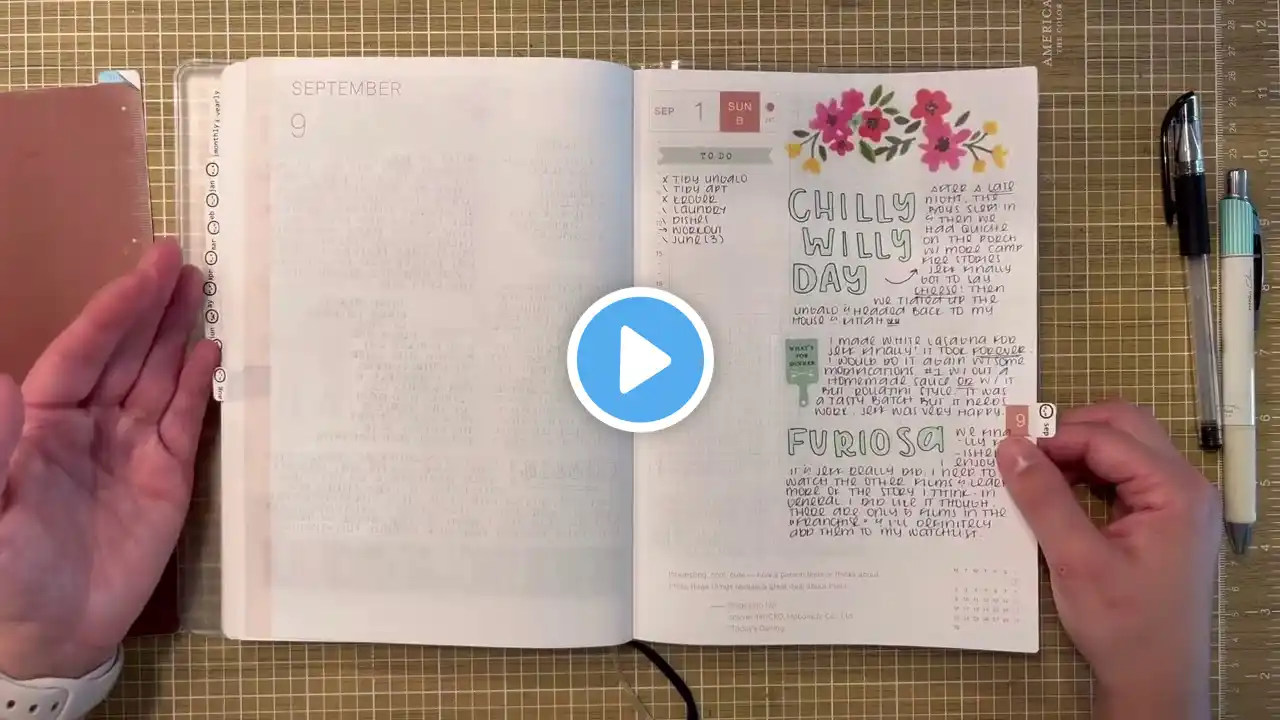 AMERICA
THE COLOR
SEPTEMBER
9
monthly & yearly
jan
mar
SEP 1 SUN 8
TO DO
x TIDY UNGALO
\ TIDY APT
x KROGER
\ LAUNDRY
\ DISHES
→ WORKOUT
\ JUNE (3)
CHILLY
WILLY
DAY
AFTER A LATE
NIGHT, THE
BOYS SLEPT IN
& THEN WE
HAD QUICHE
ON THE PORCH
W/ MORE CAMP
FIRE STORIES
JERK FINALLY
GOT TO SAY
CHEESE! THEN
WE TIDIED UP THE
UNGALO & HEADED BACK TO MY
HOUSE
WHAT'S
FOR
DINNER
I MADE WHITE LASAGNA FOR
JERK FINALLY! IT TOOK FOREVER.
I WOULD DO IT AGAIN W/ SOME
MODIFICATIONS. #1 W/OUT A
HOMEMADE SAUCE OR W/ IT
BUT ROLATINI STYLE. IT WAS
A TASTY BATCH BUT IT NEEDS
WORK. JERK WAS VERY HAPPY.
9
sep
FURIOSA
WE
I ENJOY
IT & JERK REALLY DID. I NEED TO
WATCH THE OTHER FILMS & LEARN
MORE OF THE STORY I THINK. IN
GENERAL I DID LIKE IT THOUGH.
THERE ARE ONLY 5 FILMS IN THE
"FRANCHISE" & I'LL DEFINITELY
ADD THEM TO MY WATCHLIST.